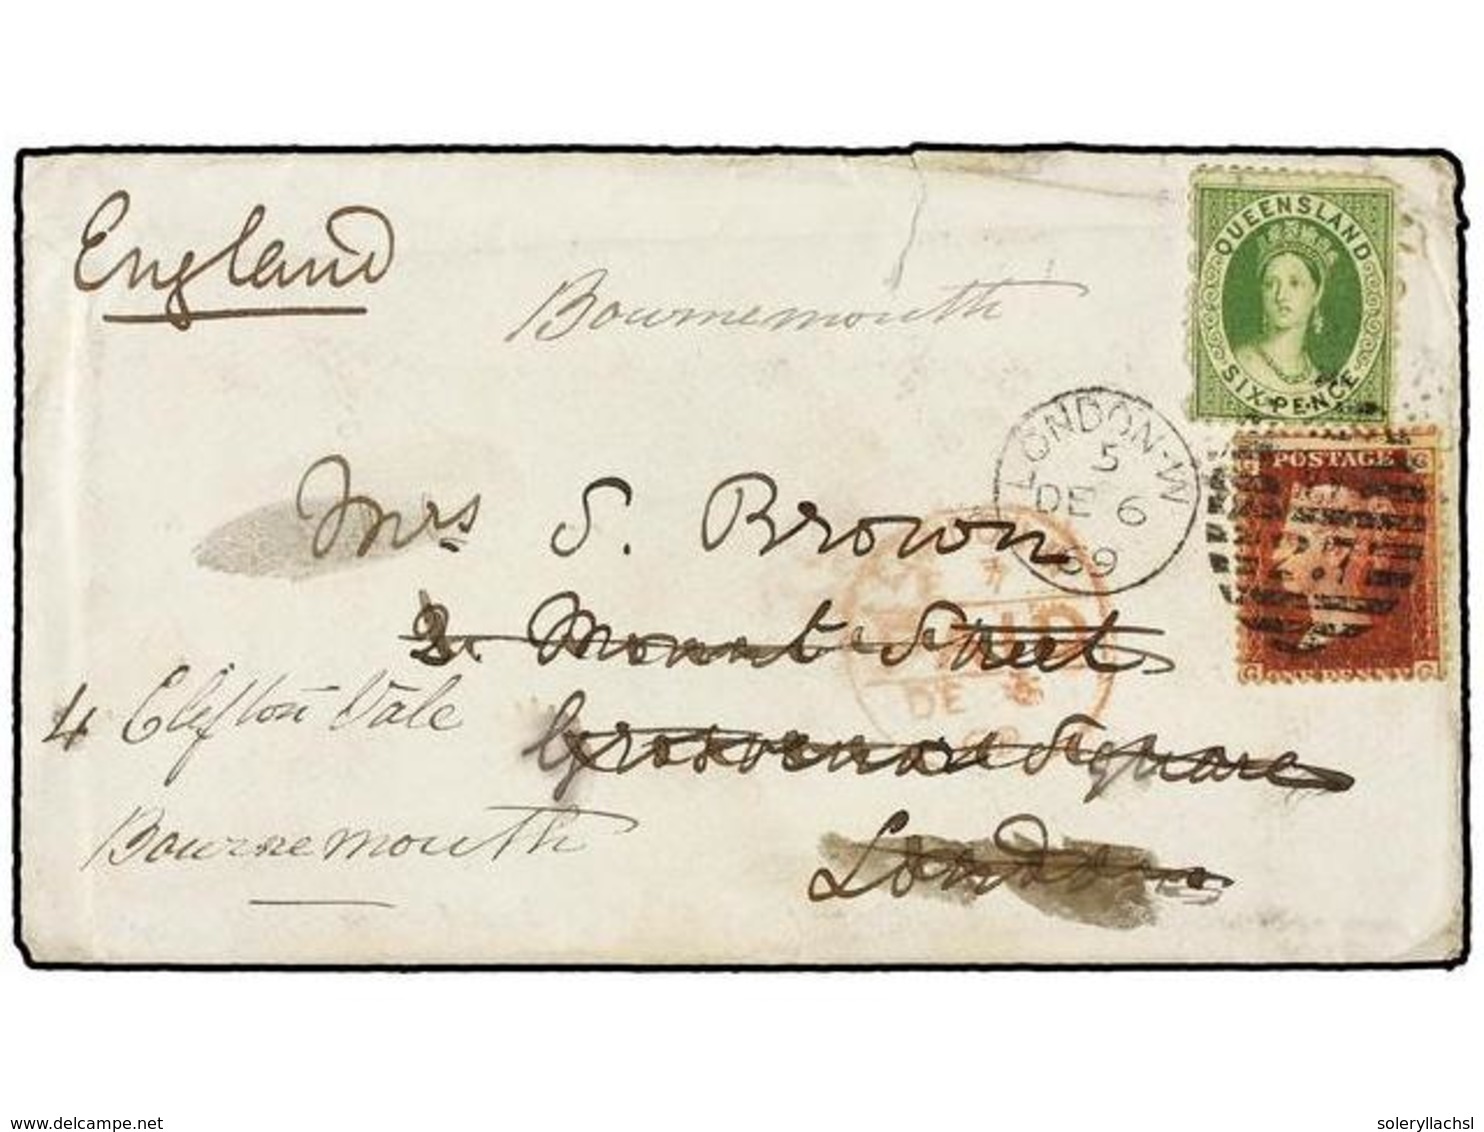 England
Bournemouth
QUEENSLAND
SIX PENCE
LONDON·W
5
DE 6
69
POSTAGE
G
27
G
ONE PENNY
G
Mrs S. Brown
2. Mount Street
PAID
DE 6
4 Clifton Vale
Grosvenor Square
Bournemouth
London
delcampe.net
soleryllachsl